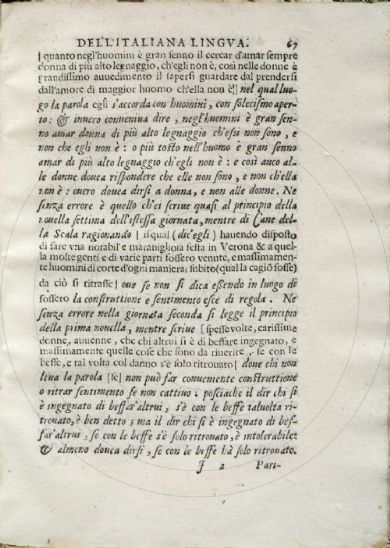 DELL'ITALIANA LINGVA. 67
[quanto negl'huomini è gran senno il cercar d'amar sempre
donna di più alto legnaggio, ch'egli non è, così nelle donne è
grandissimo auuedimento il sapersi guardar dal prendersi
dall'amore di maggior huomo ch'ella non è] nel qual luo-
go la parola egli s'accorda con huomini, con solecismo aper-
to: & inuero conueniua dire, negl'huomini è gran sen-
no amar donna di più alto legnaggio ch'essi non sono, e
non che egli non è: o più tosto nell'huomo è gran senno
amar di più alto legnaggio ch'egli non è: e così anco al-
le donne douea rispondere che elle non sono, e non ch'ella
non è: ouero douea dirsi a donna, e non alle donne. Ne
senza errore è quello ch'ei scriue quasi al principio della
nouella settima dell'istessa giornata, mentre di Cane del-
la Scala ragionando [il qual (dic'egli) hauendo disposto
di fare vna notabil'e marauigliosa festa in Verona & a quel-
la molte genti e di varie parti fossero venute, e massimamen-
te huomini di corte d'ogni maniera; subito (qual la cagiō fosse)
da ciò si ritrasse] oue se non si dica essendo in luogo di
fossero la construttione e sentimento esce di regola. Ne
senza errore nella giornata seconda si legge il principio
della prima nouella, mentre scriue [spesse volte, carissime
donne, auuenne, che chi altrui si è di beffare ingegnato, e
massimamente quelle cose che sono da riuerire, se con le
beffe, e tal volta col danno s'è solo ritrouato] doue chi non
lieua la parola [se] non può far conuenente construttione
o ritrar sentimento se non cattiuo. posciache il dir chi si
è ingegnato di beffar'altrui, s'è con le beffe taluolta ri-
trouato, è ben detto; ma il dir chi si è ingegnato di bef-
far'altrui, se con le beffe s'è solo ritrouato, è intolerabile:
& almeno douea dirsi, se con le beffe hà solo ritrouato.
I 2 Part-